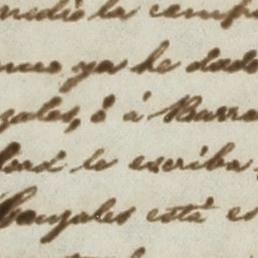 medio la campa
como ya he dado
zales, ó á Barra
dad le escriba
Gonzales está en